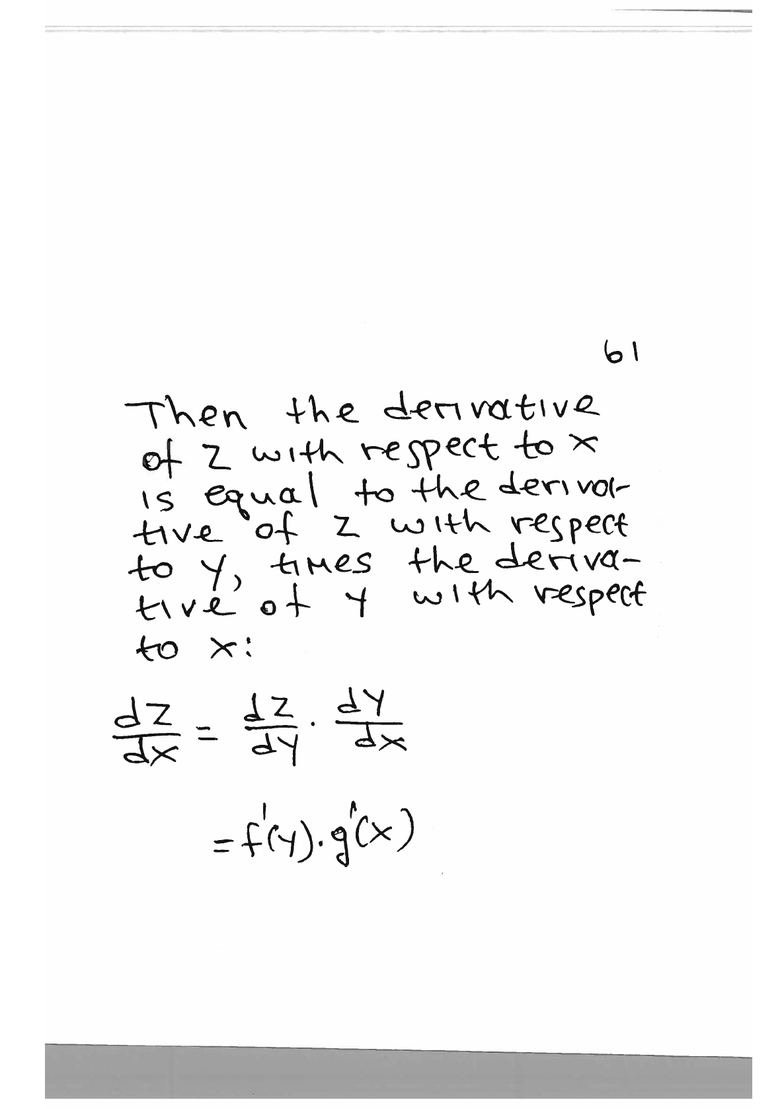 61
Then the derivative
of Z with respect to x
is equal to the deriva-
tive of Z with respect
to Y, times the deriva-
tive of Y with respect
to x:
dZ/dx = dZ/dY · dY/dx
= f'(Y)·g'(x)